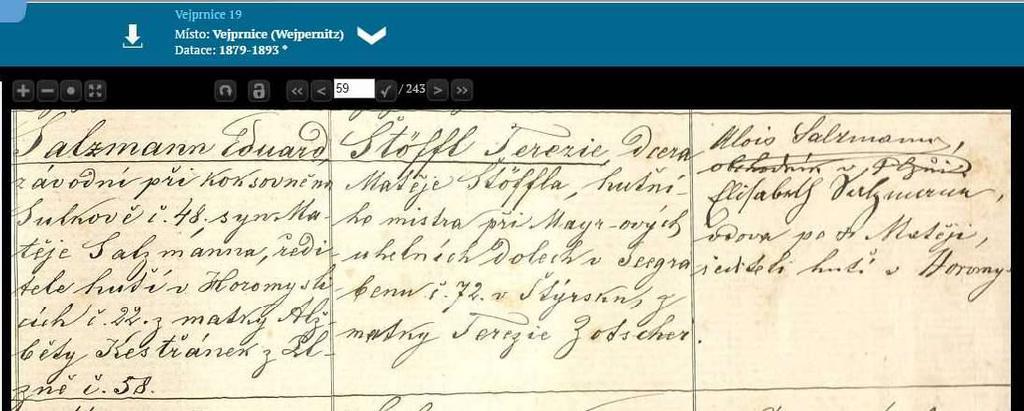 Vejprnice 19
Místo: Vejprnice (Wejpernitz)
Datace: 1879-1893 *
59 / 243
Salzmann Eduard,
závodní při koksovném
Sulkově č. 48. syn Ma-
těje Salzmánna, ředi-
tele hutí v Horomysli-
cích č. 22. z matky Alž-
běty Kestřánek z Pl-
zně č. 58.
Štöffl Terezie Dcera
Matěje Stöffla, hutní-
ho mistra při Mayr-ových
uhelních dolech v Seegra
benu č. 72. v Štýrsku, z
matky Terezie Zotscher.
Alois Salzmann,
obchodník v Plzni
Elisabeth Salzmann,
vdova po Matěji,
řediteli hutí v Horomys